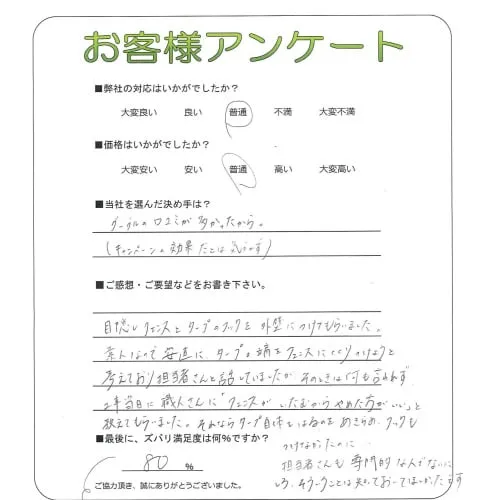 お客様アンケート
■弊社の対応はいかがでしたか？
大変良い 良い 普通 不満 大変不満
■価格はいかがでしたか？
大変安い 安い 普通 高い 大変高い
■当社を選んだ決め手は？
グーグルの口コミが多かったから。
(キャンペーンの効果だとは思うけど)
■ご感想・ご要望などをお書き下さい。
目隠しフェンスとタープのフックを外壁につけてもらいました。
素人なので安直にタープの端をフェンスにくくりつけようと
考えており担当者さんと話していましたがそのときは何も言われず
工事当日に職人さんに「フェンスがいたむからやめた方がいい」と
教えてもらいました。それならタープ自体をはるのをあきらめ、フックも
つけなかったのに…
■最後に、ズバリ満足度は何％ですか？
80 %
担当者さんも専門的な人でないに
しろ、そういうことは知っておいてほしかったです
ご協力頂き、誠にありがとうございました。